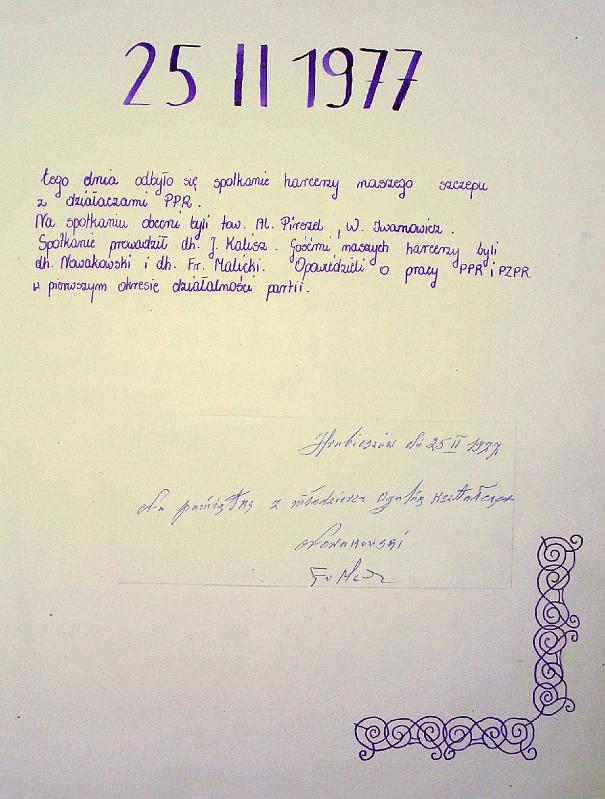 25 II 1977
tego dnia odbyło się spotkanie harcerzy naszego szczepu
z działaczami PPR.
Na spotkaniu obecni byli tow. Al. Pirszel, W. Iwanowicz.
Spotkanie prowadził dh. J. Kalisz. Gośćmi naszych harcerzy byli
dh. Nowakowski i dh. Fr. Malicki. Opowiedzieli o pracy PPR i PZPR
w pierwszym okresie działalności partii.
Hrubieszów dn 25 II 1977
Na pamiątkę z młodzieżą
Nowakowski